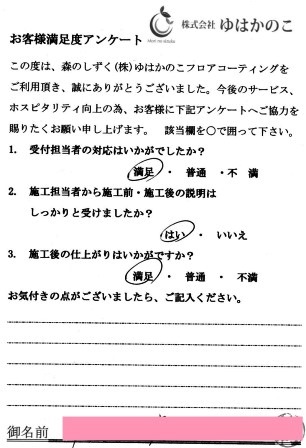 株式会社 ゆはかのこ
Mori no shizuku
お客様満足度アンケート
この度は、森のしずく(株)ゆはかのこフロアコーティングを
ご利用頂き、誠にありがとうございました。今後のサービス、
ホスピタリティ向上の為、お客様に下記アンケートへご協力を
賜りたくお願い申し上げます。 該当欄を○で囲って下さい。
1. 受付担当者の対応はいかがでしたか?
満足 ・ 普通 ・不 満
2. 施工担当者から施工前・施工後の説明は
しっかりと受けましたか?
はい ・ いいえ
3. 施工後の仕上がりはいかがですか?
満足 ・ 普通 ・ 不満
お気付きの点がございましたら、ご記入ください。
御名前